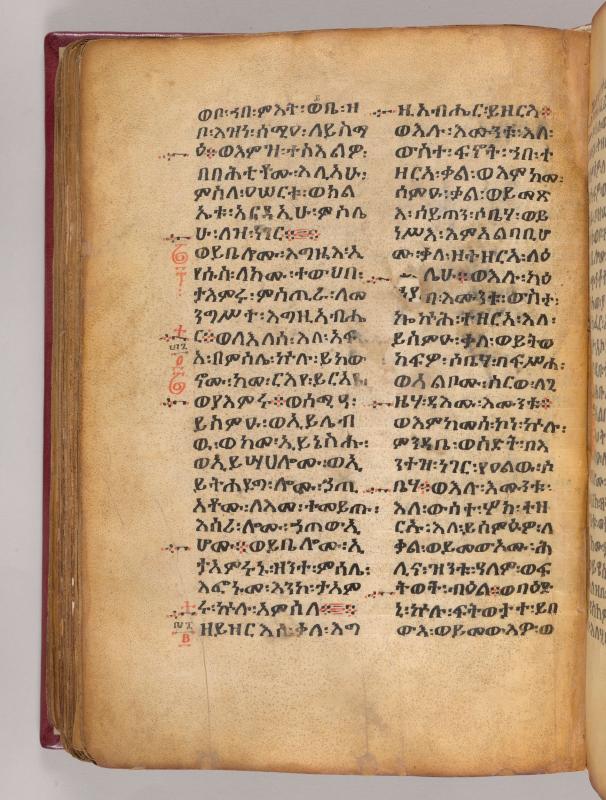 ወቦ፡ኀበ፡ምእት፡ወቤ፡ዘ
ቦ፡እዝነ፡ሰሚዐ፡ለይስማ
ዕ፨ወእምዝ፡ተስእልዎ፡
በበሕቲቶሙ፡እሊአሁ፡
ምስለ፡ዐሠርቱ፡ወክል
ኤቱ፡አርዳኢሁ፡ምስሌ
ሁ፡ለዝ፡ነገር፨
ወይቤሎሙ፡እግዚእ፡ኢ
የሱስ፡ለክሙ፡ተውህበ፡
ታእምሩ፡ምስጢራ፡ለመ
ንግሥተ፡እግዚአብሔ
ር፨ወለእለሰ፡እለ፡አፍ
አ፡በምሳሌ፡ኵሉ፡ይከው
ኖሙ፡ከመ፡ርእየ፡ይርአዩ
ወያእምሩ፨ወሰሚዓ፡
ይስምዑ፡ወኢይሌብ
ዉ፡ወከመ፡ኢይኔስሑ፡
ወኢይሣሀሎሙ፡ወኢ
ይትሐየግ፡ሎሙ፡ኃጢ
አቶሙ፡ለእመ፡ተመይጡ፡
እሰሪ፡ሎሙ፡ኃጠውኢ
ሆሙ፨ወይቤሎሙ፡ኢ
ታአምሩኑ፡ዘንተ፡ምሳሌ፡
እፎኑመ፡እንከ፡ታአም
ሩ፡ኵሉ፡አምሳለ፨
ዘይዘርእሰ፡ቃለ፡እግ
ዚአብሔር፡ይዘርእ፨
ወእሉ፡እሙንቱ፡እለ፡
ውስተ፡ፍኖት፡ኀበ፡ተ
ዘርአ፡ቃል፡ወእምከመ፡
ሰምዑ፡ቃለ፡ወይመጽ
እ፡ሰይጣን፡ሶቤሃ፡ወይ
ነሥእ፡እምልቦሙ፡
ቃለ፡ዘተዘርአ፡ላዕ
ሌሁ፨ወእሉ፡ካዕ
በ፡እሙንቱ፡ውስተ፡
ኰኵሕ፡ተዘርአ፡እለ፡
ይሰምዑ፡ቃለ፡ወይትወ
ከፍዎ፡ሶቤሃ፡በፍሥሐ፡
ወአልቦሙ፡ሥርወ፡ለጊ
ዜሃ፡ዳእሙ፡እሙንቱ፨
ወእምከመሰ፡ኮነ፡ኵሉ፡
ምንዳቤ፡ወስደት፡በእ
ንተዝ፡ነገር፡የዐልው፡ሶ
ቤሃ፨ወእሉ፡እሙንቱ፡
እለ፡ውስተ፡ሦክ፡ተዘ
ርኡ፡እለ፡ይሰምዕዎ፡ለ
ቃል፡ወይመውኦሙ፡ሕ
ሊና፡ዝንቱ፡ዓለም፡ወፍ
ትወት፡ብዕል፡ወበዕድ
ኒ፡ኵሉ፡ፍትወታተ፡ይበ
ውእ፡ወይመውእዎ፡ወ